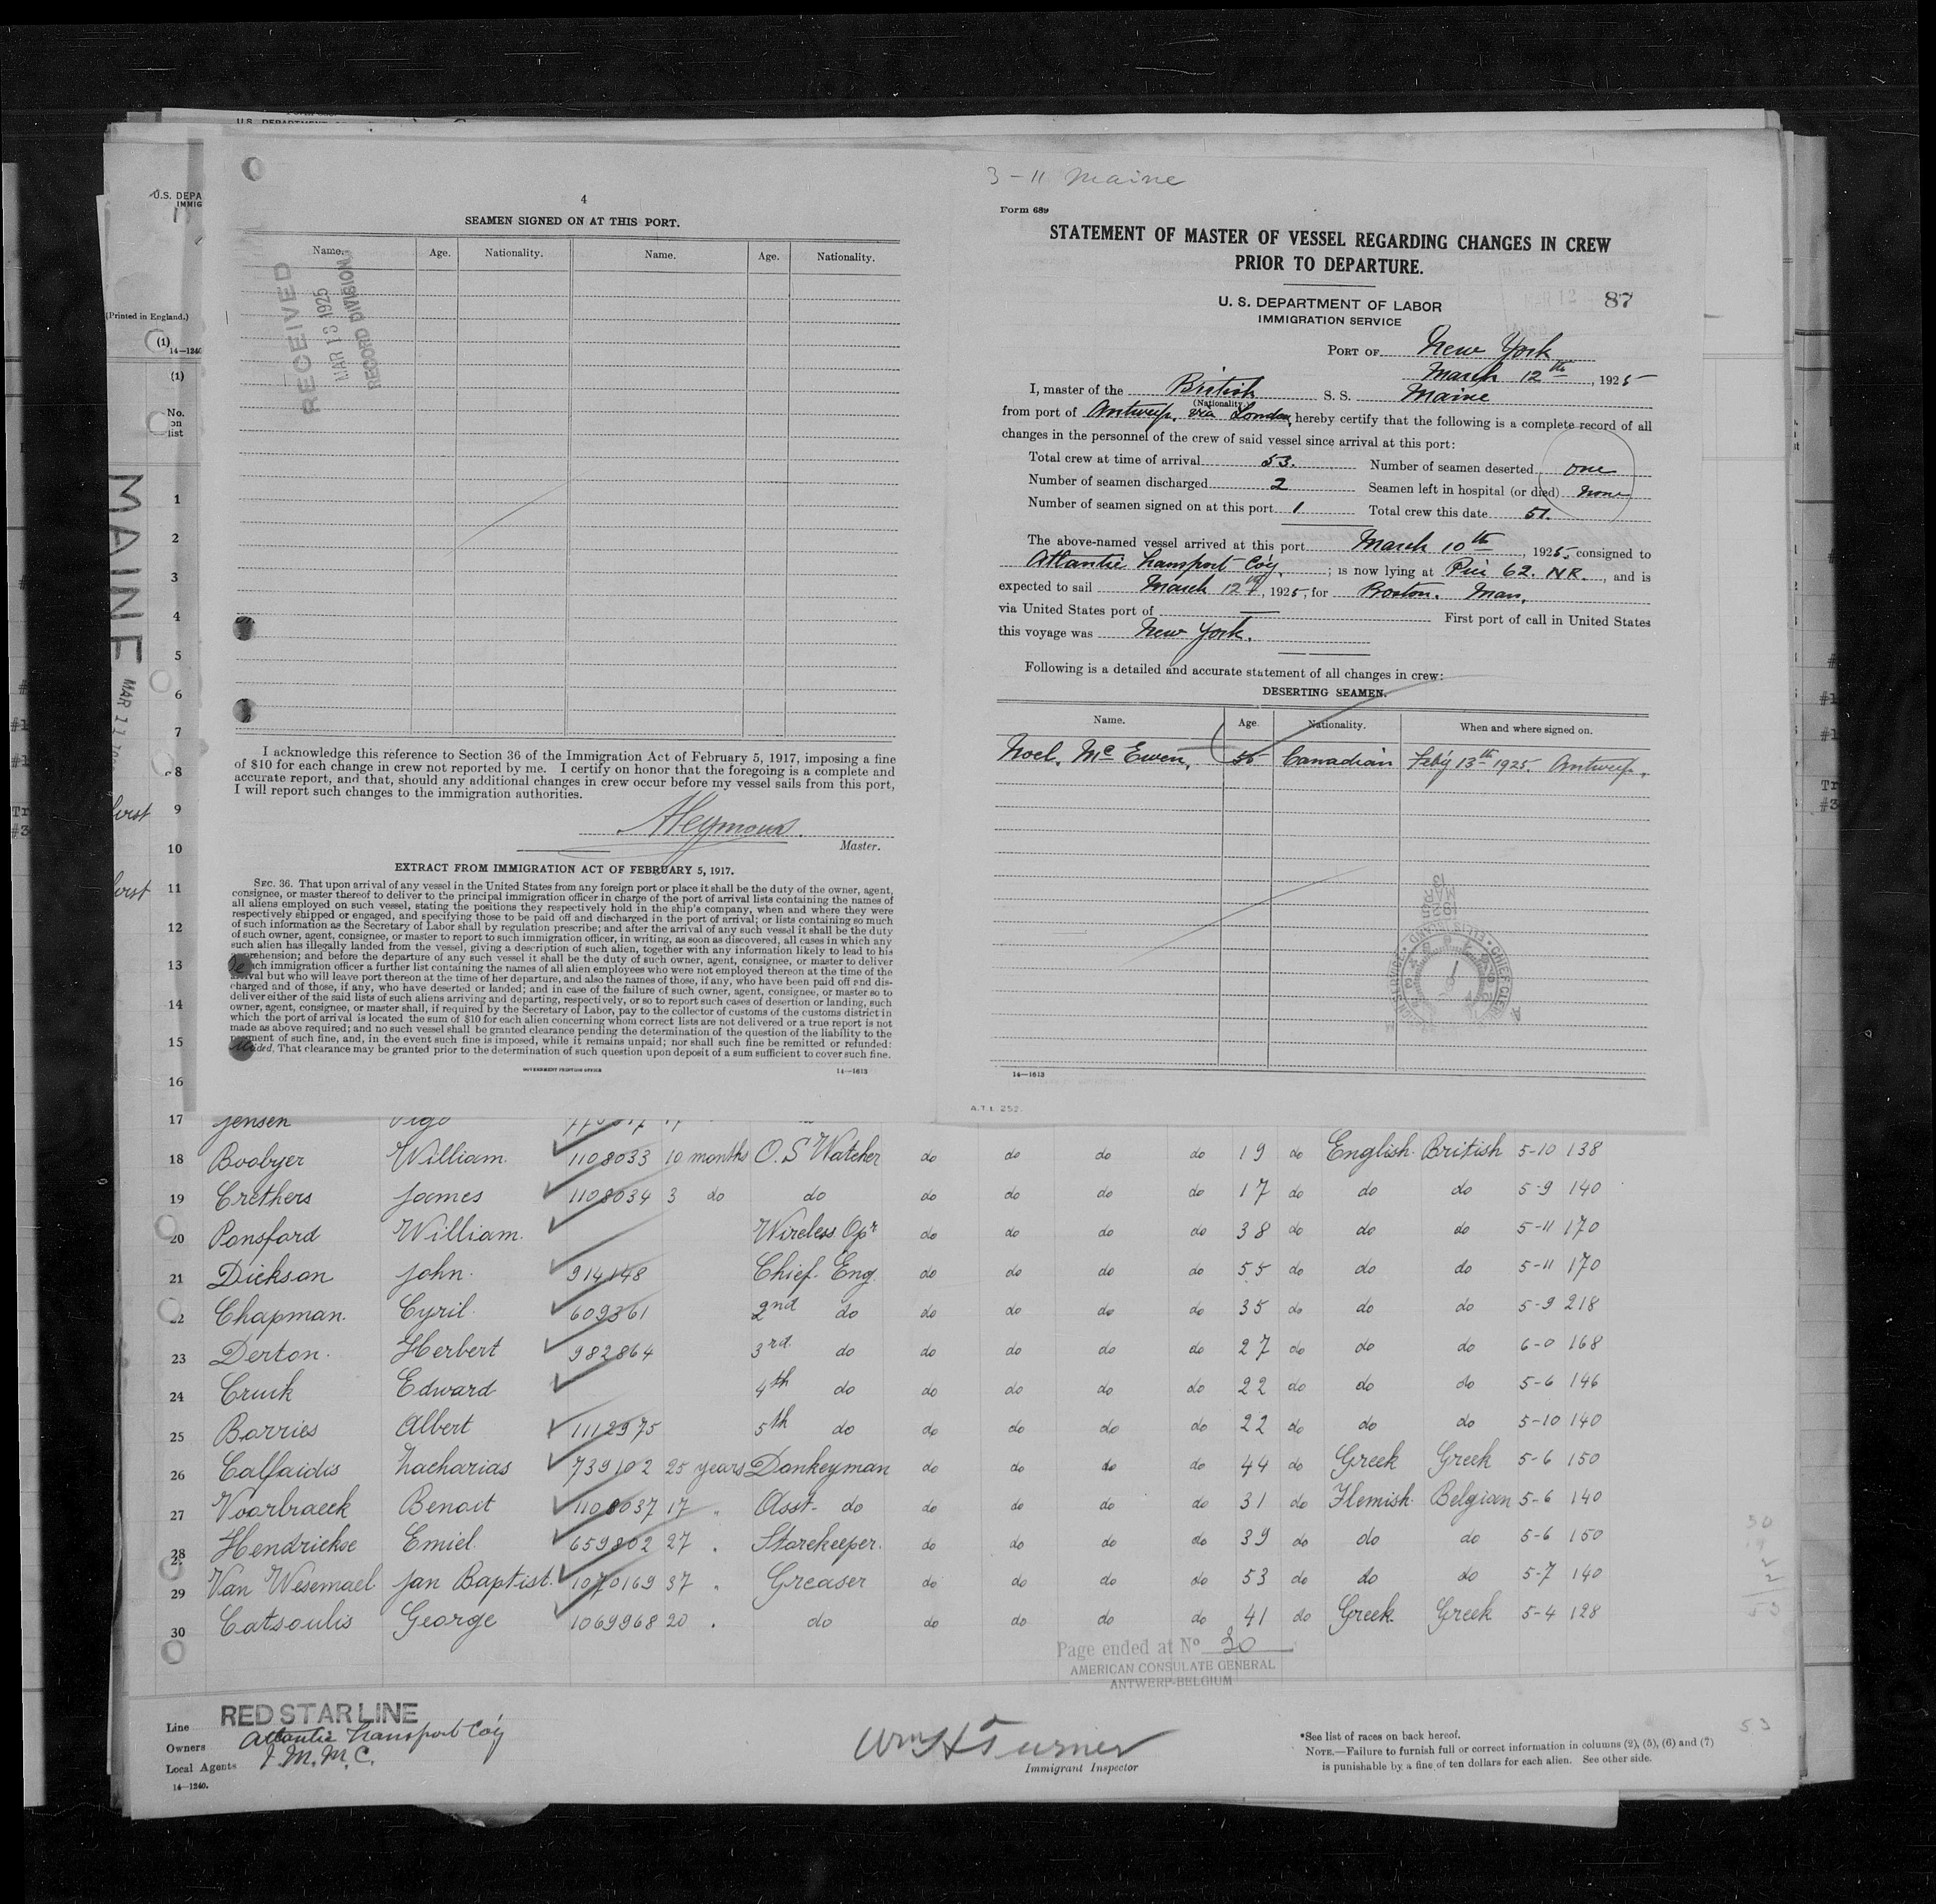 U.S. DEPA
IMMIG
(Printed in England.)
(1)
14—1240
(1)
No.
on
list
MAINE
MAR 11
4
SEAMEN SIGNED ON AT THIS PORT.
Name. Age. Nationality. Name. Age. Nationality.
RECEIVED
MAR 13 1925
RECORD DIVISION
I acknowledge this reference to Section 36 of the Immigration Act of February 5, 1917, imposing a fine
of $10 for each change in crew not reported by me. I certify on honor that the foregoing is a complete and
accurate report, and that, should any additional changes in crew occur before my vessel sails from this port,
I will report such changes to the immigration authorities.
Master.
EXTRACT FROM IMMIGRATION ACT OF FEBRUARY 5, 1917.
SEC. 36. That upon arrival of any vessel in the United States from any foreign port or place it shall be the duty of the owner, agent,
consignee, or master thereof to deliver to the principal immigration officer in charge of the port of arrival lists containing the names of
all aliens employed on such vessel, stating the positions they respectively hold in the ship's company, when and where they were
respectively shipped or engaged, and specifying those to be paid off and discharged in the port of arrival; or lists containing so much
of such information as the Secretary of Labor shall by regulation prescribe; and after the arrival of any such vessel it shall be the duty
of such owner, agent, consignee, or master to report to such immigration officer, in writing, as soon as discovered, all cases in which any
such alien has illegally landed from the vessel, giving a description of such alien, together with any information likely to lead to his
apprehension; and before the departure of any such vessel it shall be the duty of such owner, agent, consignee, or master to deliver
to such immigration officer a further list containing the names of all alien employees who were not employed thereon at the time of the
arrival but who will leave port thereon at the time of her departure, and also the names of those, if any, who have been paid off and dis-
charged and of those, if any, who have deserted or landed; and in case of the failure of such owner, agent, consignee, or master so to
deliver either of the said lists of such aliens arriving and departing, respectively, or so to report such cases of desertion or landing, such
owner, agent, consignee, or master shall, if required by the Secretary of Labor, pay to the collector of customs of the customs district in
which the port of arrival is located the sum of $10 for each alien concerning whom correct lists are not delivered or a true report is not
made as above required; and no such vessel shall be granted clearance pending the determination of the question of the liability to the
payment of such fine, and, in the event such fine is imposed, while it remains unpaid; nor shall such fine be remitted or refunded:
Provided, That clearance may be granted prior to the determination of such question upon deposit of a sum sufficient to cover such fine.
GOVERNMENT PRINTING OFFICE 14—1613
3-11 Maine
Form 689
STATEMENT OF MASTER OF VESSEL REGARDING CHANGES IN CREW
PRIOR TO DEPARTURE.
U. S. DEPARTMENT OF LABOR
IMMIGRATION SERVICE
MAR 12
87
PORT OF New York
March 12th, 1925
I, master of the British S. S. Maine
(Nationality.)
from port of Antwerp, via London, hereby certify that the following is a complete record of all
changes in the personnel of the crew of said vessel since arrival at this port:
Total crew at time of arrival 53. Number of seamen deserted one
Number of seamen discharged 2 Seamen left in hospital (or died) none
Number of seamen signed on at this port 1 Total crew this date 51.
The above-named vessel arrived at this port March 10th, 1925, consigned to
Atlantic Transport Coy, ; is now lying at Pier 62. NR., and is
expected to sail March 12th, 1925, for Boston. Mass,
via United States port of First port of call in United States
this voyage was New York.
Following is a detailed and accurate statement of all changes in crew:
DESERTING SEAMEN.
Name. Age. Nationality. When and where signed on.
Noel, Mc Ewen, Canadian Feby 13th 1925. Antwerp.
14—1613
A.T.L. 252.
1
2
3
4
5
6
7
8
9
10
11
12
13
14
15
16
17 Jensen
18 Boobyer William. 1108033 10 months O.S Watcher do do do do 19 do English. British 5-10 138
19 Crethers James 1108034 3 do do do do do do 17 do do do 5-9 140
20 Ponsford William. Wireless Opr do do do do 38 do do do 5-11 170
21 Dickson John. 914148 Chief. Eng. do do do do 55 do do do 5-11 170
22 Chapman. Cyril. 609361 2nd do do do do do 35 do do do 5-9 218
23 Derton. Herbert 982864 3rd do do do do do 27 do do do 6-0 168
24 Cruik Edward 4th do do do do do 22 do do do 5-6 146
25 Barries Albert 1112975 5th do do do do do 22 do do do 5-10 140
26 Calfaidis Zacharias 739102 25 years Donkeyman do do do do 44 do Greek Greek 5-6 150
27 Voorbraeck Benoit 1108037 17 " Asst- do do do do do 31 do Flemish. Belgian 5-6 140
28 Hendrickse Emiel. 659802 27 " Storekeeper. do do do do 39 do do do 5-6 150
29 Van Wesemael Jan Baptist. 1070169 37 " Greaser do do do do 53 do do do 5-7 140
30 Catsoulis George 1069968 20 " do do do do do 41 do Greek. Greek 5-4 128
Page ended at No 30
AMERICAN CONSULATE GENERAL
ANTWERP-BELGIUM
Line RED STAR LINE
Owners Atlantic Transport Coy
Local Agents I. M. M. C.
14—1240.
Wm H Turner
Immigrant Inspector
*See list of races on back hereof.
NOTE.—Failure to furnish full or correct information in columns (2), (5), (6) and (7)
is punishable by a fine of ten dollars for each alien. See other side.
53